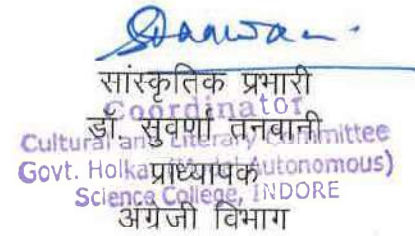 सांस्कृतिक प्रभारी
Coordinator
डॉ. सुवर्णा तनवानी
Cultural and Literary Committee
Govt. Holkar Autonomous)
प्राध्यापक
Science College, INDORE
अंग्रेजी विभाग